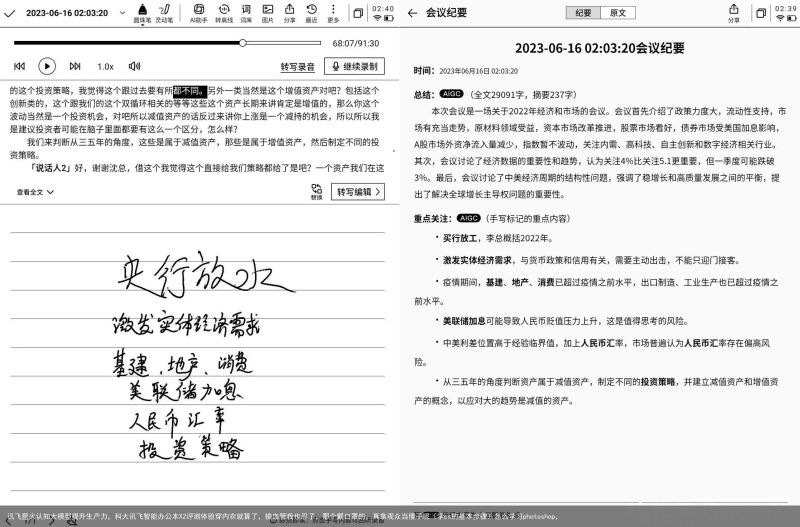 2023-06-16 02:03:20
圆珠笔
灵动笔
AI助手
转离线
词库
图片
分享
最近
更多
02:40
68:07/91:30
1.0x
转写录音
继续录制
的这个投资策略，我觉得这个跟过去要有所都不同。另外一类当然是这个增值资产对吧？包括这个
创新类的，这个跟我们的这个双循环相关的等等这些这个资产长期来讲肯定是增值的，那么你这个
波动当然是一个投资机会，对吧所以减值资产的话反过来讲你上涨是一个减持的机会，所以所以我
是建议投资者可能在脑子里面都要有这么一个区分，怎么样？
我们来判断从三五年的角度，这些是属于减值资产，那些是属于增值资产，然后制定不同的投
资策略。
「说话人2」好，谢谢沈总，借这个我觉得这个直接给我们策略都给了是吧？一个资产我们在这
查看全文
替换
转写编辑
央行放水
激发实体经济需求
基建、地产、消费
美联储加息
人民币汇率
投资策略
会议纪要
纪要
原文
分享
02:39
2023-06-16 02:03:20会议纪要
时间：2023年06月16日 02:03:20
总结：AIGC（全文29091字，摘要237字）
本次会议是一场关于2022年经济和市场的会议。会议首先介绍了政策力度大，流动性支持，市
场有充当走势，原材料领域受益，资本市场改革推进，股票市场看好，债券市场受美国加息影响，
A股市场外资净流入量减少，指数暂不波动，关注内需、高科技、自主创新和数字经济相关行业。
其次，会议讨论了经济数据的重要性和趋势，认为关注4%比关注5.1更重要，但一季度可能跌破
3%。最后，会议讨论了中美经济周期的结构性问题，强调了稳增长和高质量发展之间的平衡，提
出了解决全球增长主导权问题的重要性。
重点关注：AIGC（手写标记的重点内容）
• 买行放工，李总概括2022年。
• 激发实体经济需求，与货币政策和信用有关，需要主动出击，不能只迎门接客。
• 疫情期间，基建、地产、消费已超过疫情之前水平，出口制造、工业生产也已超过疫情之
前水平。
• 美联储加息可能导致人民币贬值压力上升，这是值得思考的风险。
• 中美利差位置高于经验临界值，加上人民币汇率，市场普遍认为人民币汇率存在偏高风
险。
• 从三五年的角度判断资产属于减值资产，制定不同的投资策略，并建立减值资产和增值资
产的概念，以应对大的趋势是减值的资产。
讯飞星火认知大模型提升生产力，科大讯飞智能办公本X2评测体验穿内衣就算了，输血管我也忍了，那个戴口罩的，真拿观众当傻子呢（学ps的基本步骤）怎么学习photoshop，